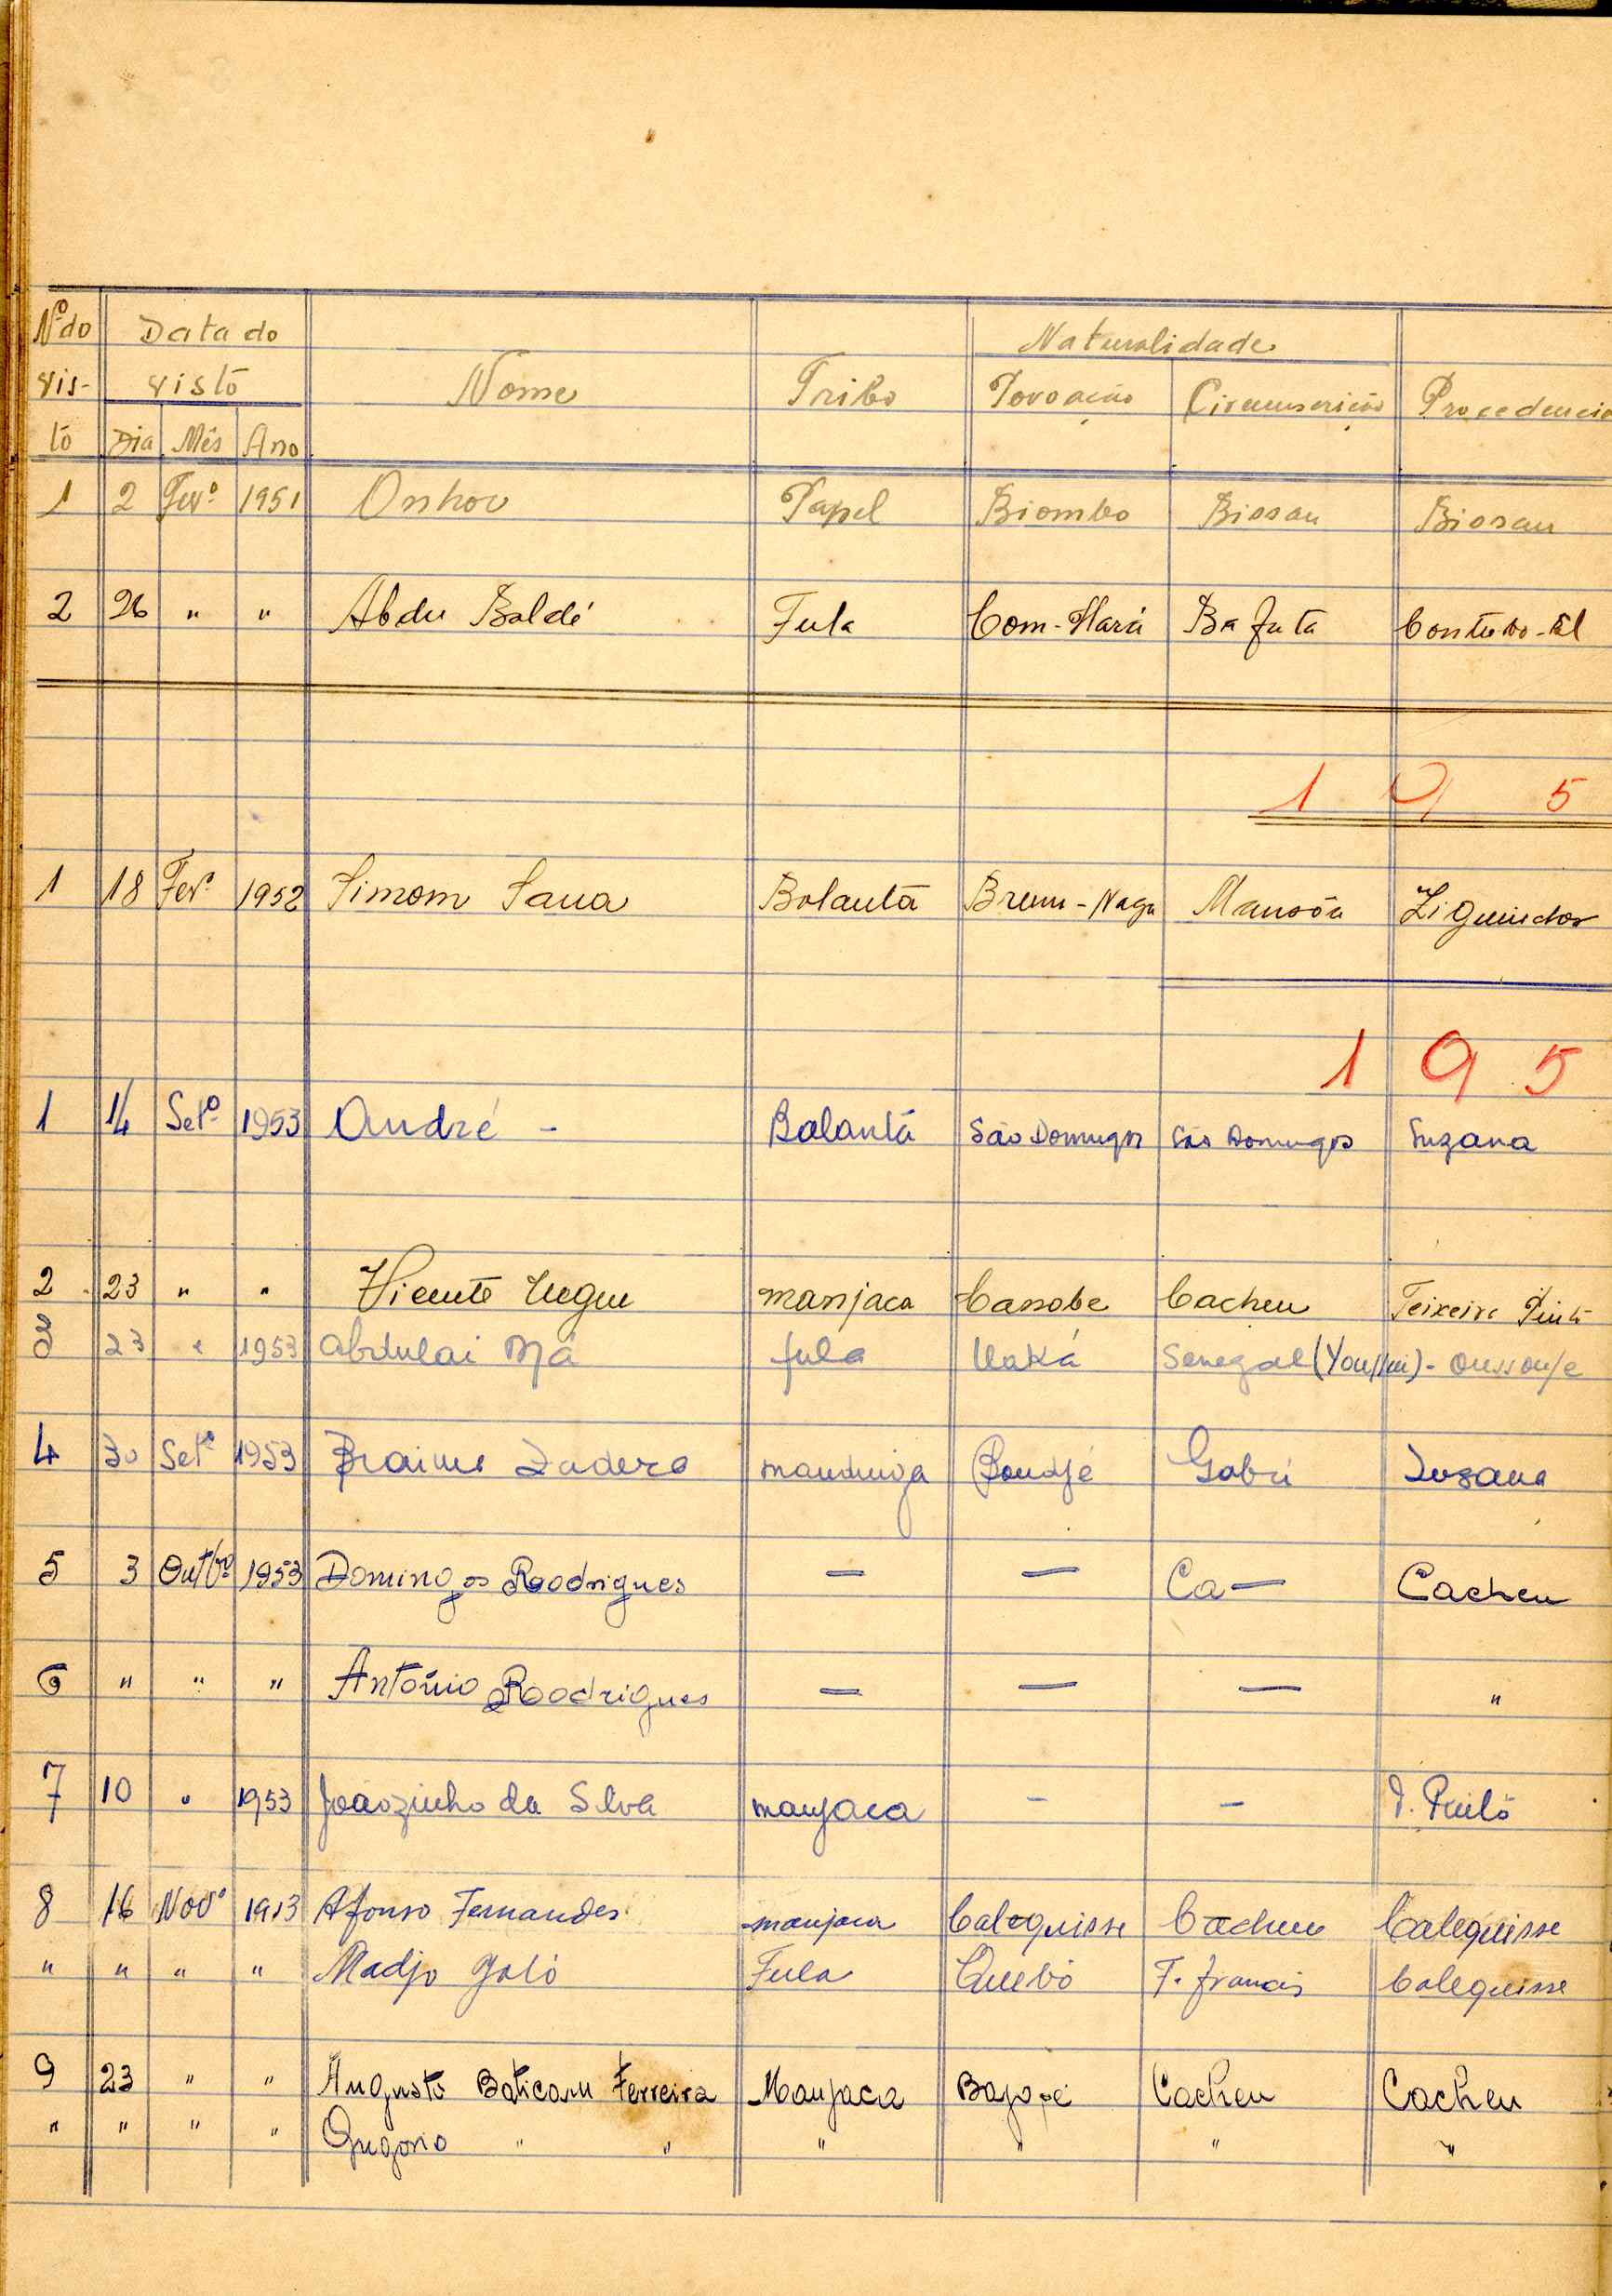 Nº do Data do Naturalidade
vis- visto Nome Tribo Povoação Circunscrição Procedencia
to Dia Mês Ano
1 2 Fevº 1951 Onhov Papel Biombo Bissau Bissau
2 26 " " Abdu Baldé Fula Com-Hará Bafata Contubo-El
1 9 5
1 18 Fevº 1952 Simom Saua Balanta Brum-Naga Mansôa Ziguinchor
1 9 5
1 14 Setº 1953 André - Balantá São Domingos São Domingos Suzana
2 23 " " Vicente manjaca Canobe Cacheu Teixeira Pinto
3 23 " 1953 Abdulai fula Senegal (
4 30 Setº 1953 Braima mandinga Gabú Suzana
5 3 Outbrº 1953 Domingos Roodrigues — — Ca— Cacheu
6 " " " António Roodrigues — — — "
7 10 " 1953 Joãozinho da Silva manjaca - - T. Pinto
8 16 Novº 1953 Afonso Fernandes manjaca Calequisse Cacheu Calequisse
" " " " Madjo Galó Fula Quebó F. francis Calequisse
9 23 " " Augusto Baticam Ferreira Manjaca Cacheu Cacheu
" " " " Gregorio " " " " " "